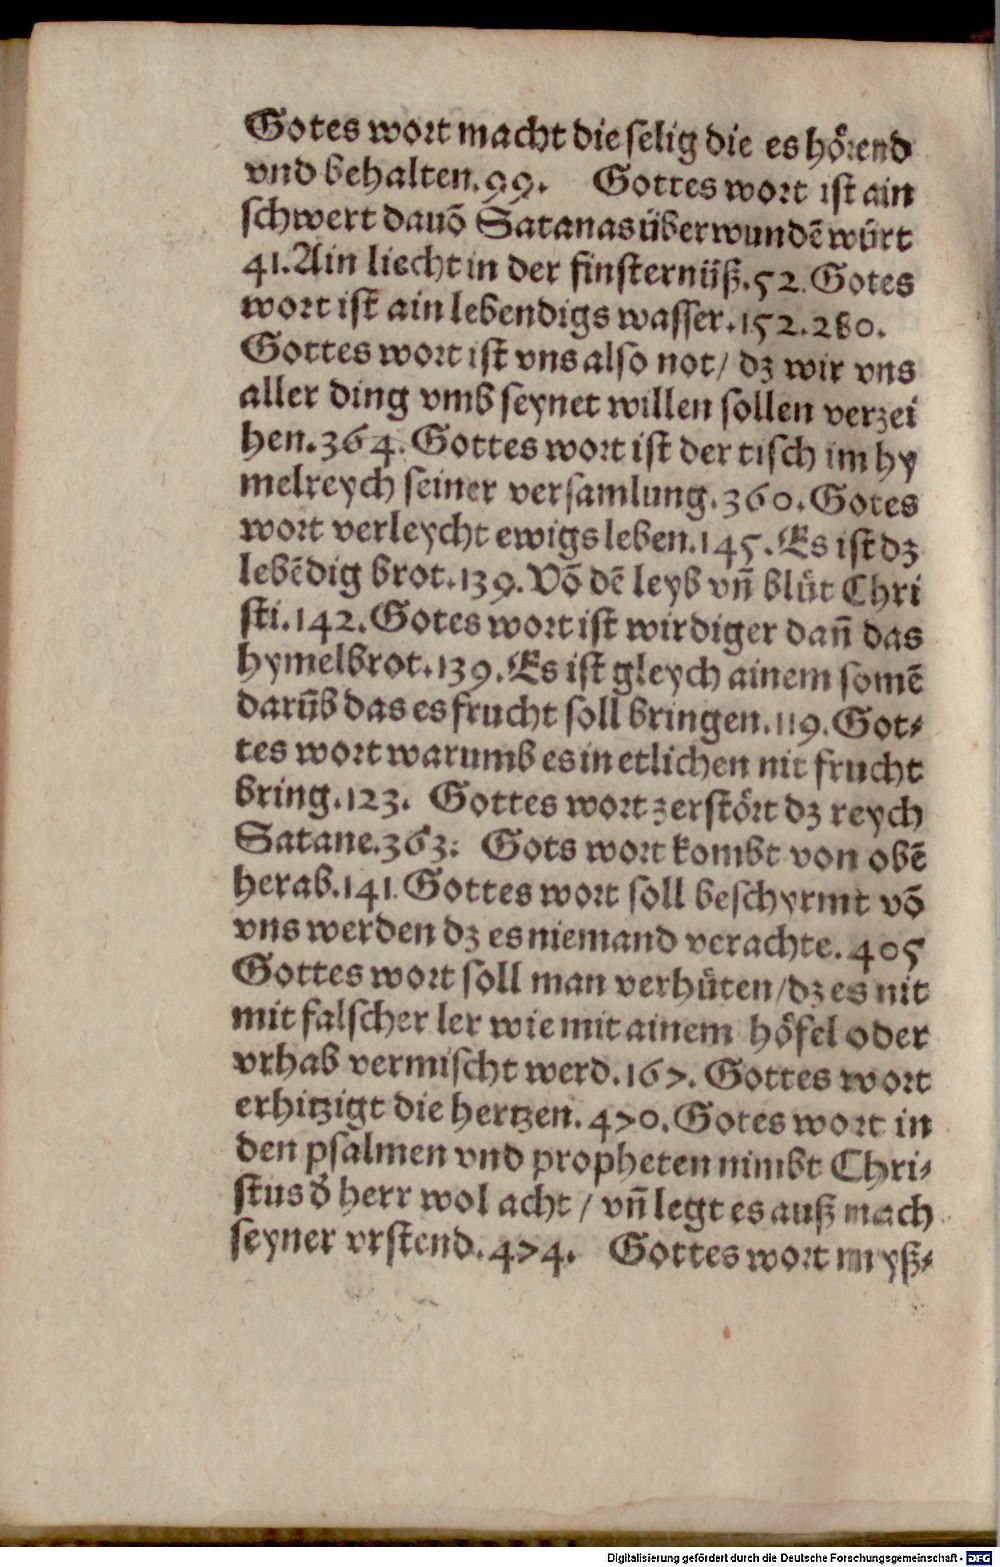 Gotes wort macht die selig die es hoͤrend
vnd behalten.99. Gottes wort ist ain
schwert dauō Satanas überwundē würt
41.Ain liecht in der finsternüß.52.Gotes
wort ist ain lebendigs wasser.152.280.
Gottes wort ist vns also not/ dz wir vns
aller ding vmb seynet willen sollen verzei
hen.364.Gottes wort ist der tisch im hy
melreych seiner versamlung.360.Gotes
wort verleycht ewigs leben.145.Es ist dz
lebēdig brot.139.Vō dē leyb vn̄ blůt Chri
sti.142.Gotes wort ist wirdiger dan̄ das
hymelbrot.139.Es ist gleych ainem somē
darūb das es frucht soll bringen.119.Got⸗
tes wort warumb es in etlichen nit frucht
bring.123. Gottes wort zerstoͤrt dz reych
Satane.363. Gots wort kombt von obē
herab.141.Gottes wort soll beschyrmt vō
vns werden dz es niemand verachte.405
Gottes wort soll man verhuͤten/dz es nit
mit falscher ler wie mit ainem hoͤfel oder
vrhab vermischt werd.167.Gottes wort
erhitzigt die hertzen.470.Gotes wort in
den psalmen vnd propheten nimbt Chri⸗
stus d̄ herr wol acht/ vn̄ legt es auß nach
seyner vrstend.474. Gottes wort myß⸗
Digitalisierung gefördert durch die Deutsche Forschungsgemeinschaft - DFG